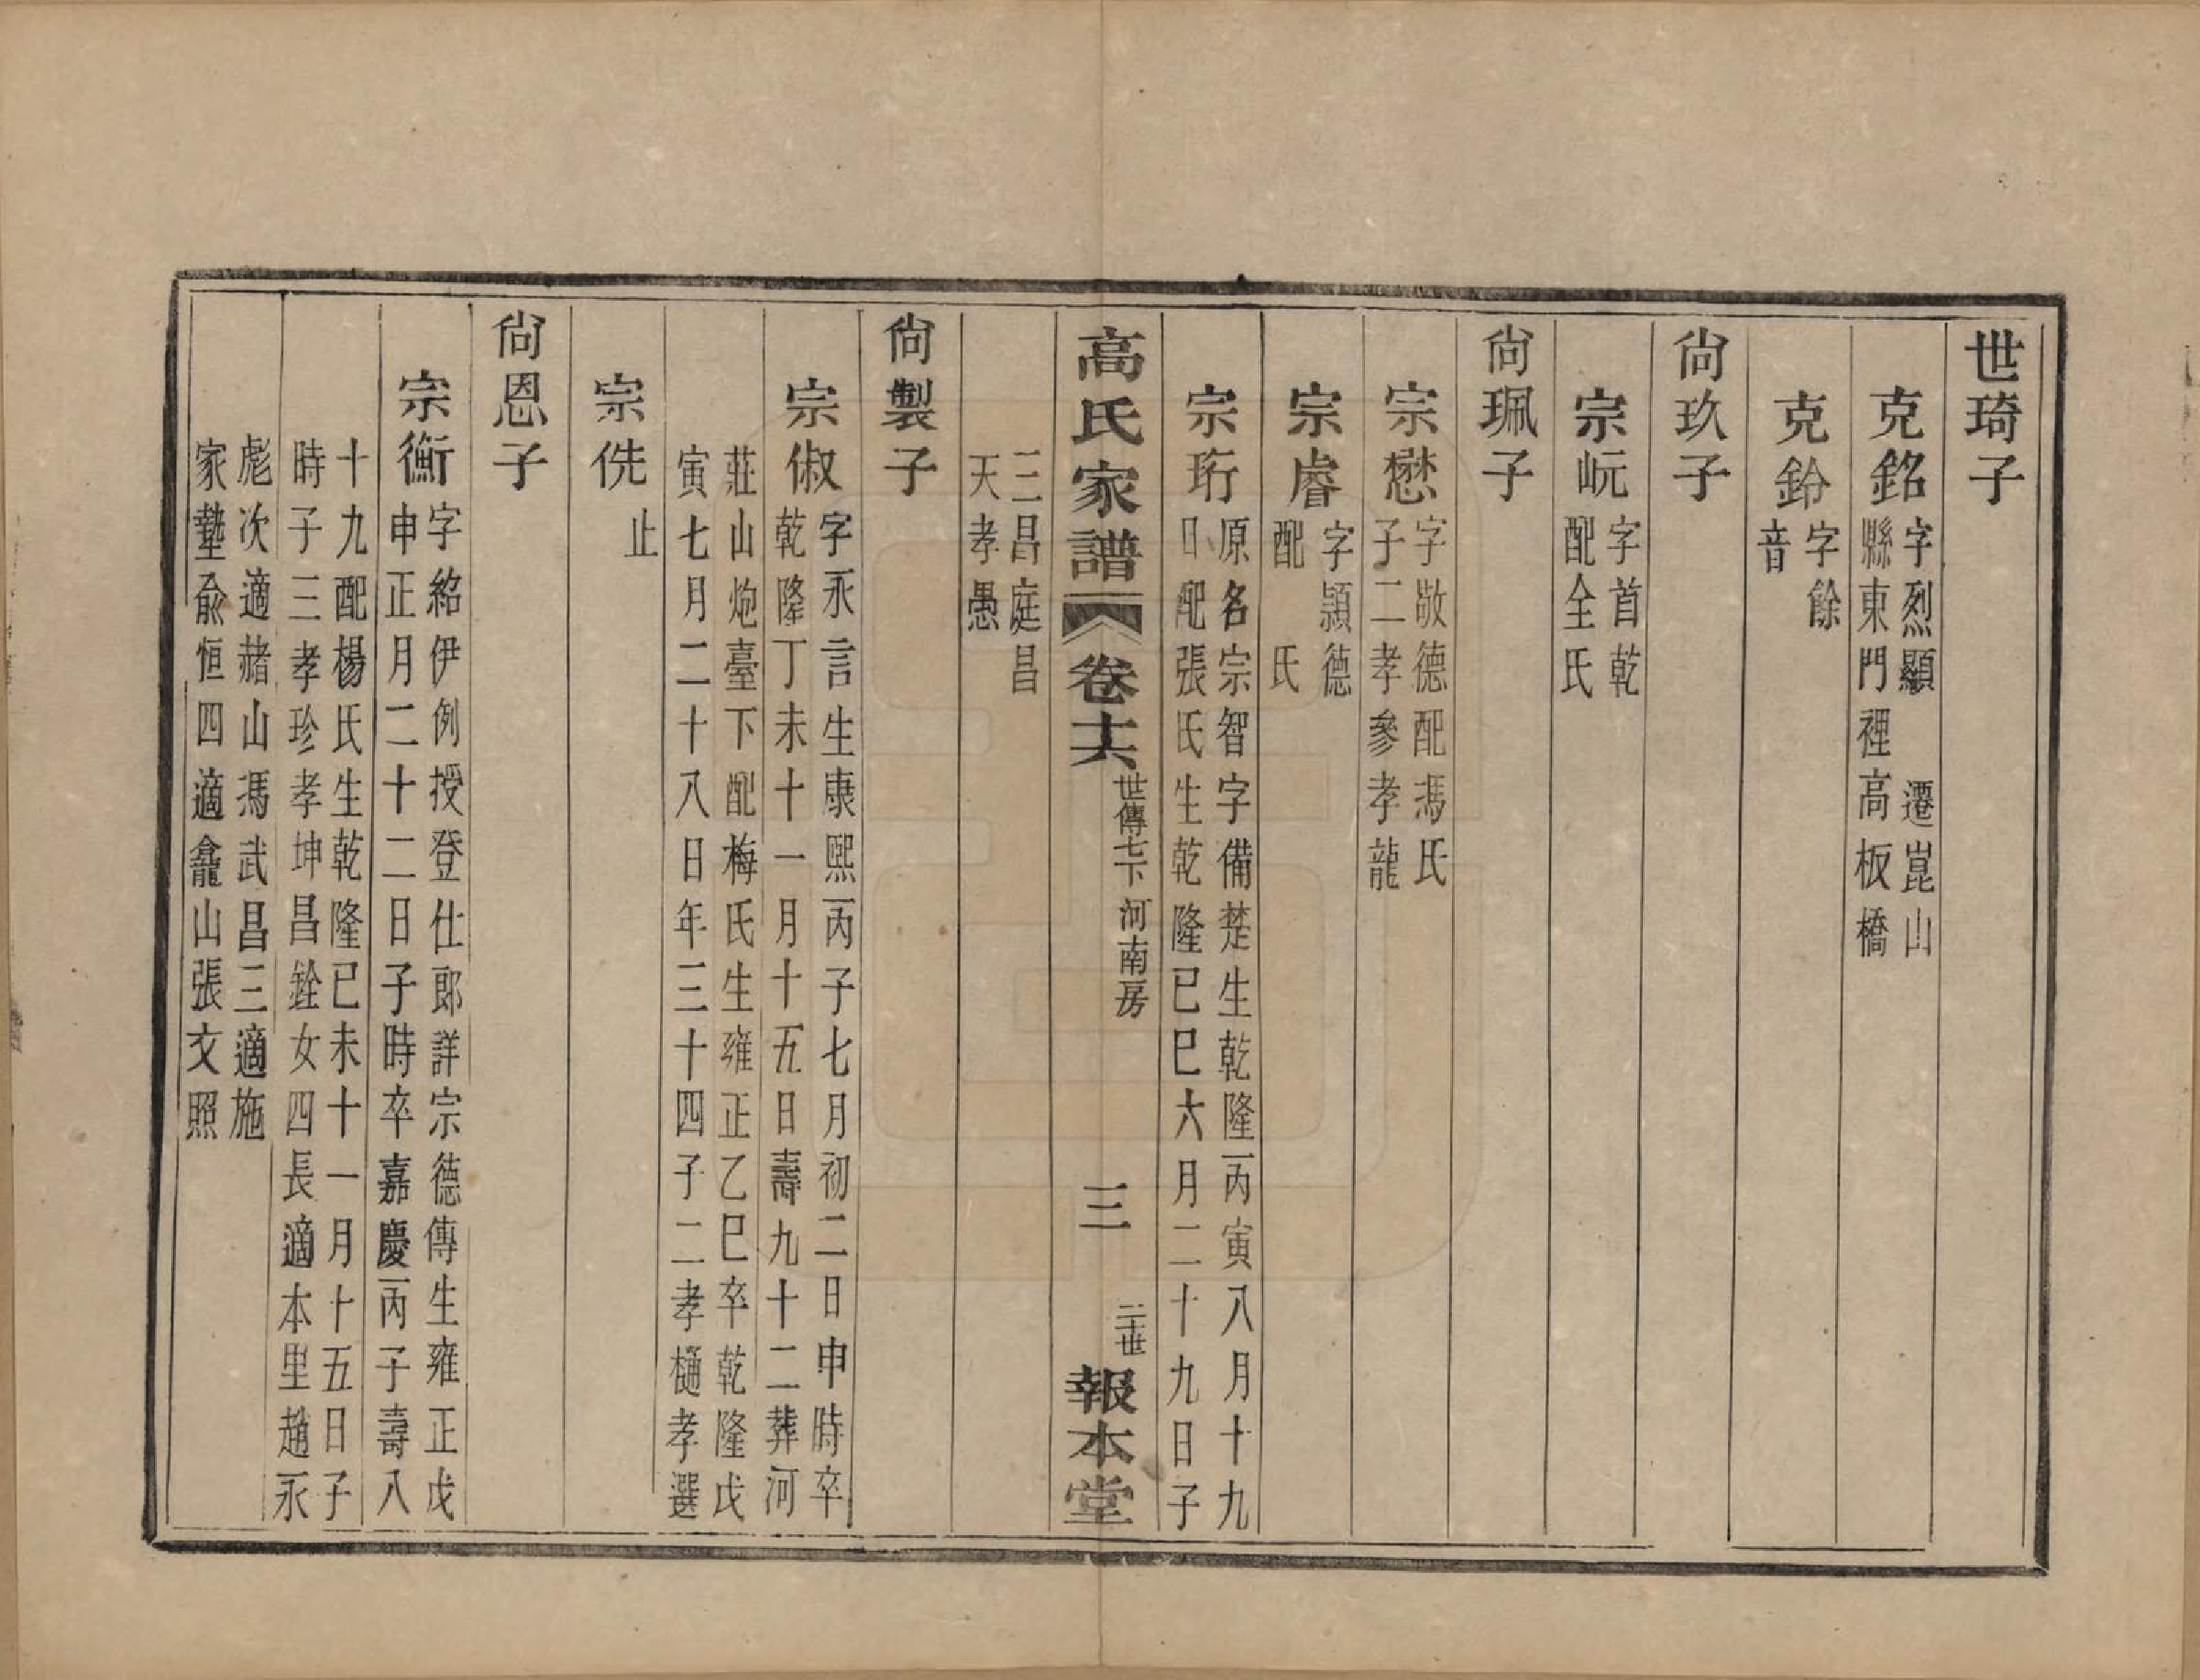 世琦子
克銘
字烈顯　遷崑山
縣東門裡高板橋
克鈴
字餘
音
尙玖子
宗岏
字首乾
配全氏
尙珮子
宗懋
字敬德配馮氏
子二孝參孝龍
宗睿
字潁德
配　氏
宗珩
原名宗智字備楚生乾隆丙寅八月十九
日配張氏生乾隆己巳六月二十九日子
三昌庭昌
天孝愚
高氏家譜
卷十六
世傳七下　河南房
三
二十世
報本堂
尙製子
宗俶
字永言生康熙丙子七月初二日申時卒
乾隆丁未十一月十五日壽九十二葬河
莊山炮臺下配梅氏生雍正乙巳卒乾隆戊
寅七月二十八日年三十四子二孝樋孝選
宗侁
止
尙恩子
宗衡
字紹伊例授登仕郎詳宗德傳生雍正戊
申正月二十二日子時卒嘉慶丙子壽八
十九配楊氏生乾隆己未十一月十五日子
時子三孝珍孝坤昌銓女四長適本里趙永
彪次適赭山馮武昌三適施
家墊兪恒四適龕山張文照